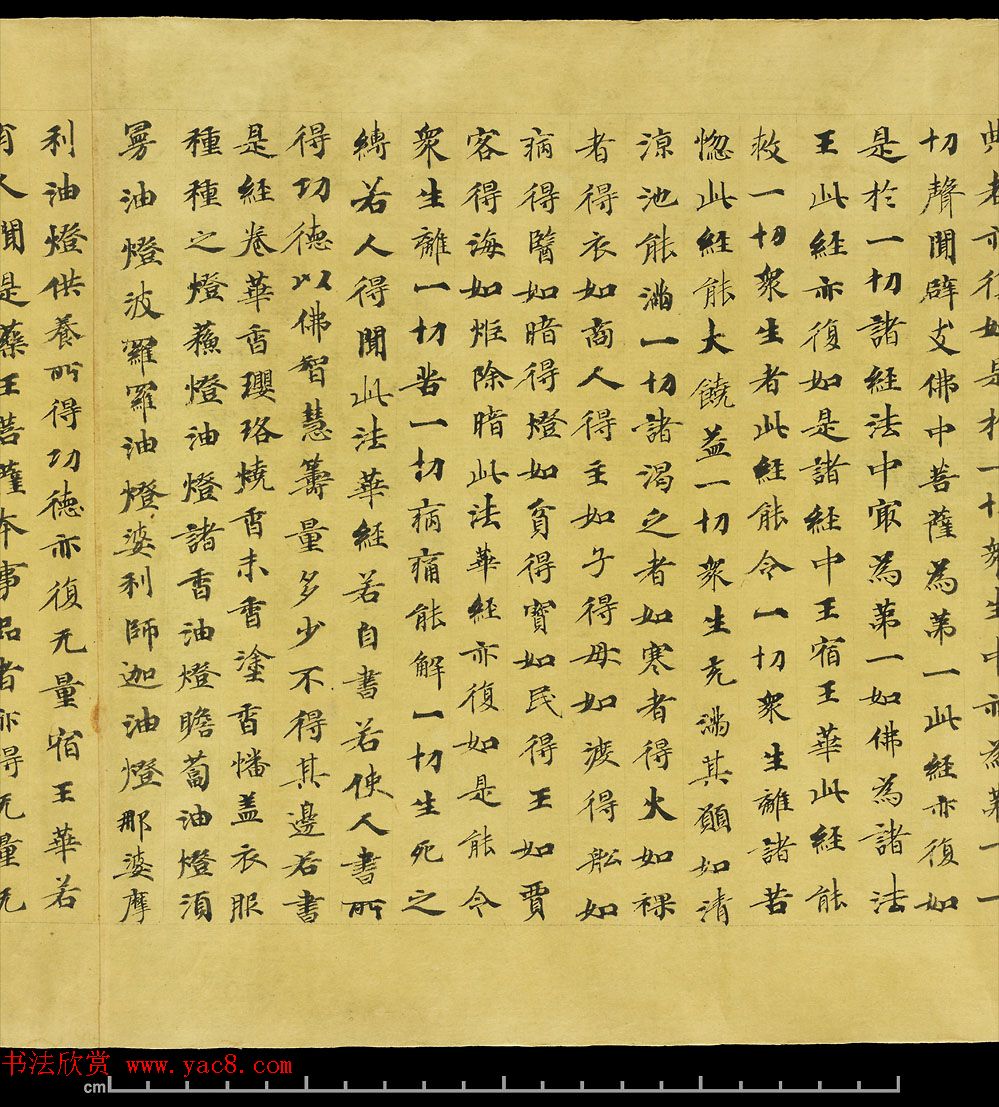 典者亦復如是於一切衆生中亦為第一一
切聲聞辟支佛中菩薩為第一此經亦復如
是於一切諸經法中冣為第一如佛為諸法
王此經亦復如是諸經中王宿王華此經能
救一切衆生者此經能令一切衆生離諸苦
惚此經能大饒益一切衆生充滿其願如清
涼池能滿一切諸渴之者如寒者得火如裸
者得衣如商人得主如子得母如渡得舩如
病得醫如暗得燈如貧得寶如民得王如賈
客得海如炬除暗此法華經亦復如是能令
衆生離一切苦一切病痛能解一切生死之
縛若人得聞此法華經若自書若使人書所
得功德以佛智慧籌量多少不得其邊若書
是經卷華香瓔珞燒香末香塗香幡盖衣服
種種之燈蘓燈油燈諸香油燈瞻蔔油燈須
曼油燈波羅羅油燈婆利師迦油燈那婆摩
利油燈供養所得功德亦復无量宿王華若
有人聞是藥王菩薩本事品者亦得无量无
书法欣赏 www.yac8.com
cm